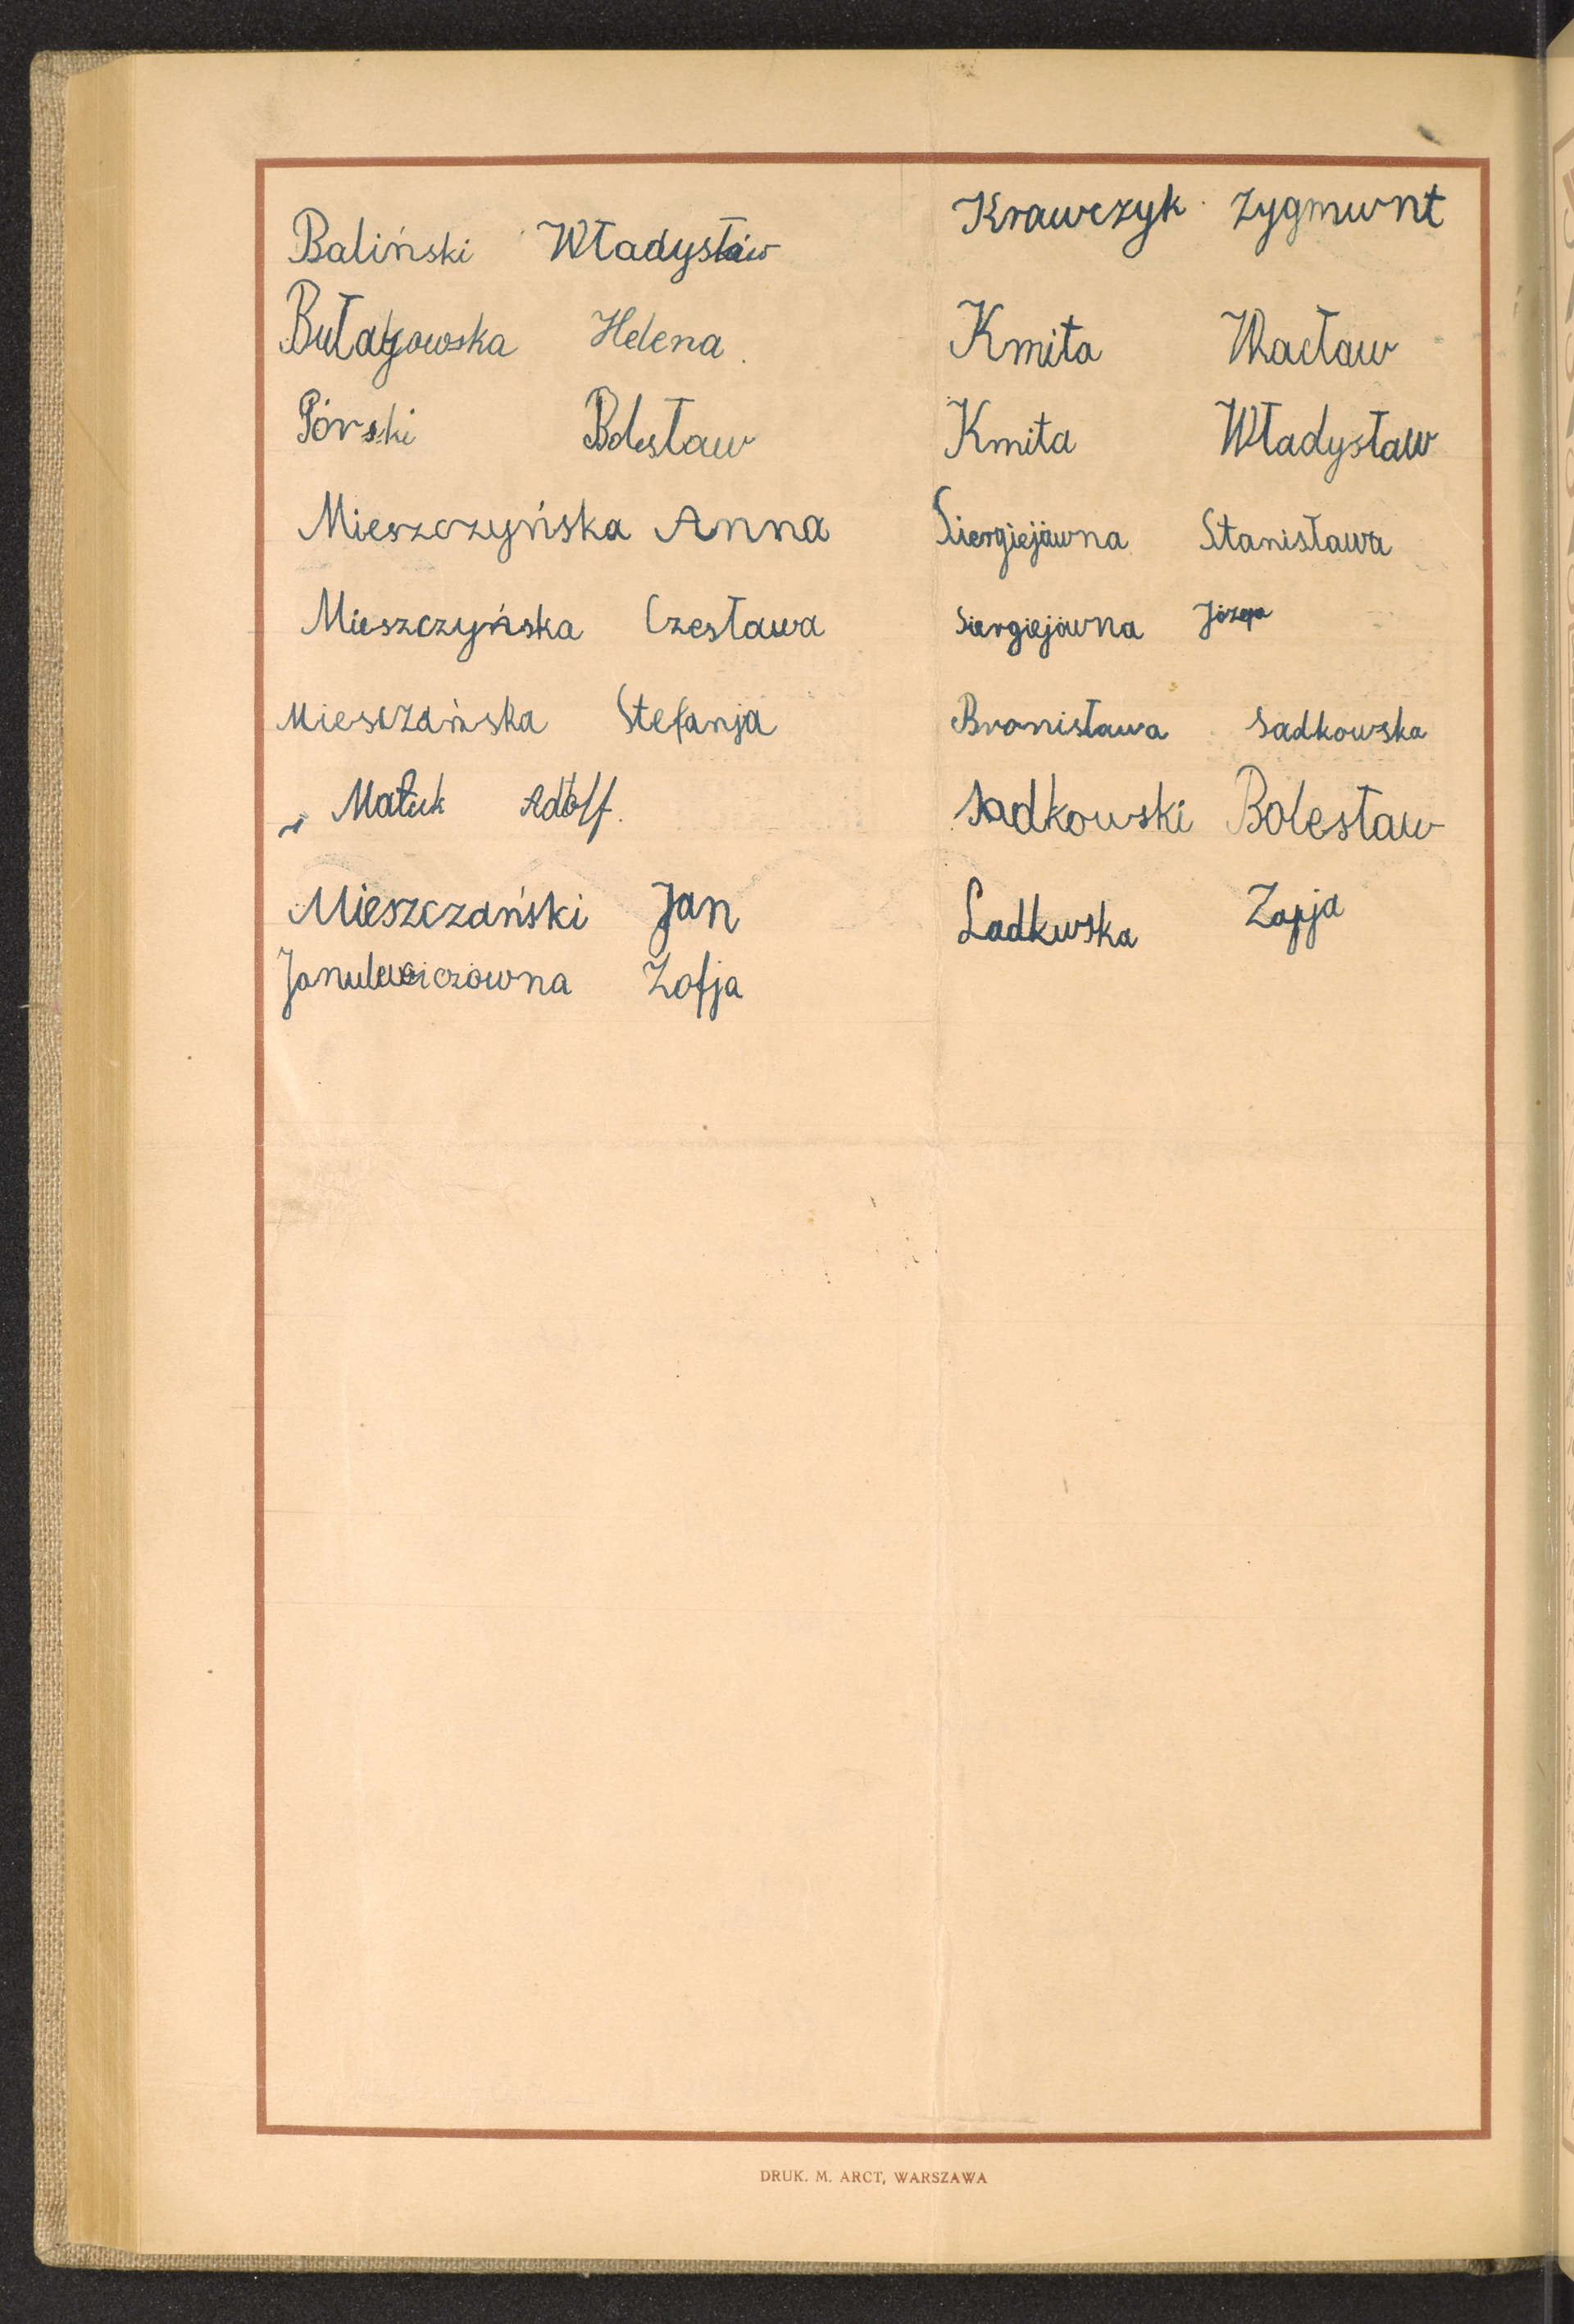 Baliński Władysław
Butagowska Helena.
Górski Bolesław
Mieszczyńska Anna
Mieszczyńska Czesława
Miesczańska Stefanja
Matuk Adolf.
Mieszczański Jan
Janulewiczówna Zofja
Krawczyk Zygmunt
Kmita Wacław
Kmita Władysław
Siergiejówna Stanisława
Siergiejówna Józefa
Bronisława Sadkowska
Sadkowski Bolesław
Sadkwska Zofja
DRUK. M. ARCT, WARSZAWA